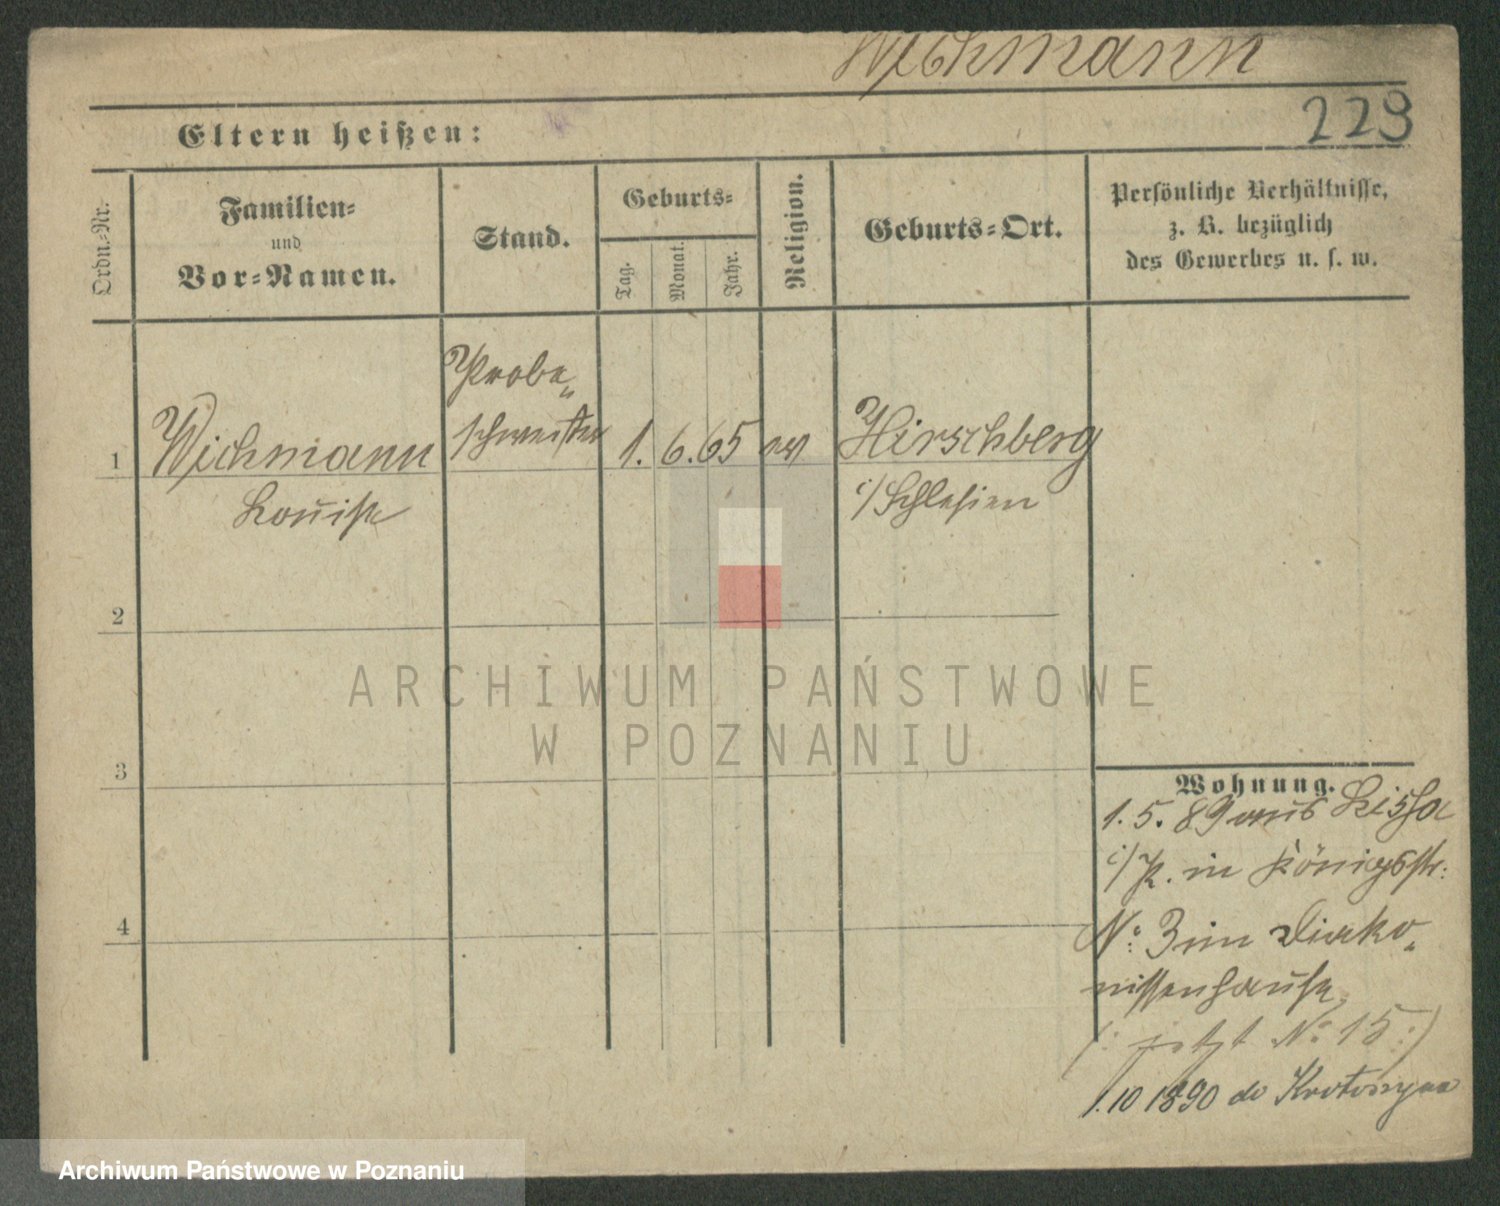 Wichmann
223
Eltern heißen:
Ordn.-Nr.
Familien-
und
Vor-Namen.
Stand.
Geburts-
Tag.
Monat.
Jahr.
Religion.
Geburts-Ort.
Persönliche Verhältnisse,
z. B. bezüglich
des Gewerbes u. s. w.
1
Wichmann
Louise
Probe-
schwester
1. 6. 65
ev
Hirschberg
i/ Schlesien
2
3
4
Wohnung.
1. 5. 89 aus Lissa
i/P. in Königsstr:
No: 3 im Diako-
nissenhause
(: jetzt No: 15 :)
1. 10 1890 do Krotoszyna
ARCHIWUM PAŃSTWOWE
W POZNANIU
Archiwum Państwowe w Poznaniu